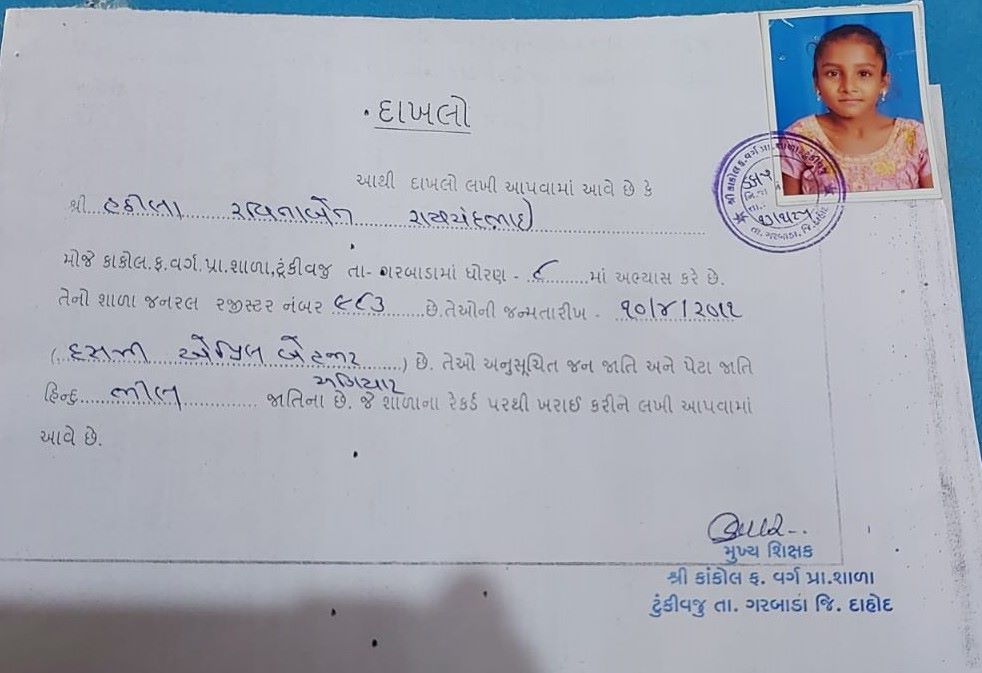 દાખલો
આથી દાખલો લખી આપવામાં આવે છે કે
શ્રી.. હઠીલા રવિનાબેન રાયચંદભાઇ
મોજે કાકોલ.ફ.વર્ગ.પ્રા.શાળા,ટુંકીવજુ તા- ગરબાડામાં ધોરણ - ૮ માં અભ્યાસ કરે છે.
તેનો શાળા જનરલ રજીસ્ટર નંબર ૯૮૩ છે.તેઓની જન્મતારીખ - ૧૦/૪/૨૦૧૧
( દસમી એપ્રિલ બે હજાર અગિયાર ) છે. તેઓ અનુસૂચિત જન જાતિ અને પેટા જાતિ
હિન્દુ ભીલ જાતિના છે. જે શાળાના રેકર્ડ પરથી ખરાઈ કરીને લખી આપવામાં
આવે છે.
શ્રી કાંકોલ ફ. વર્ગ પ્રા. શાળા ટુંકીવજુ
તા. ગરબાડા, જિ. દાહોદ
મુખ્ય શિક્ષક
શ્રી કાંકોલ ફ. વર્ગ પ્રા.શાળા
ટુંકીવજુ તા. ગરબાડા જિ. દાહોદ